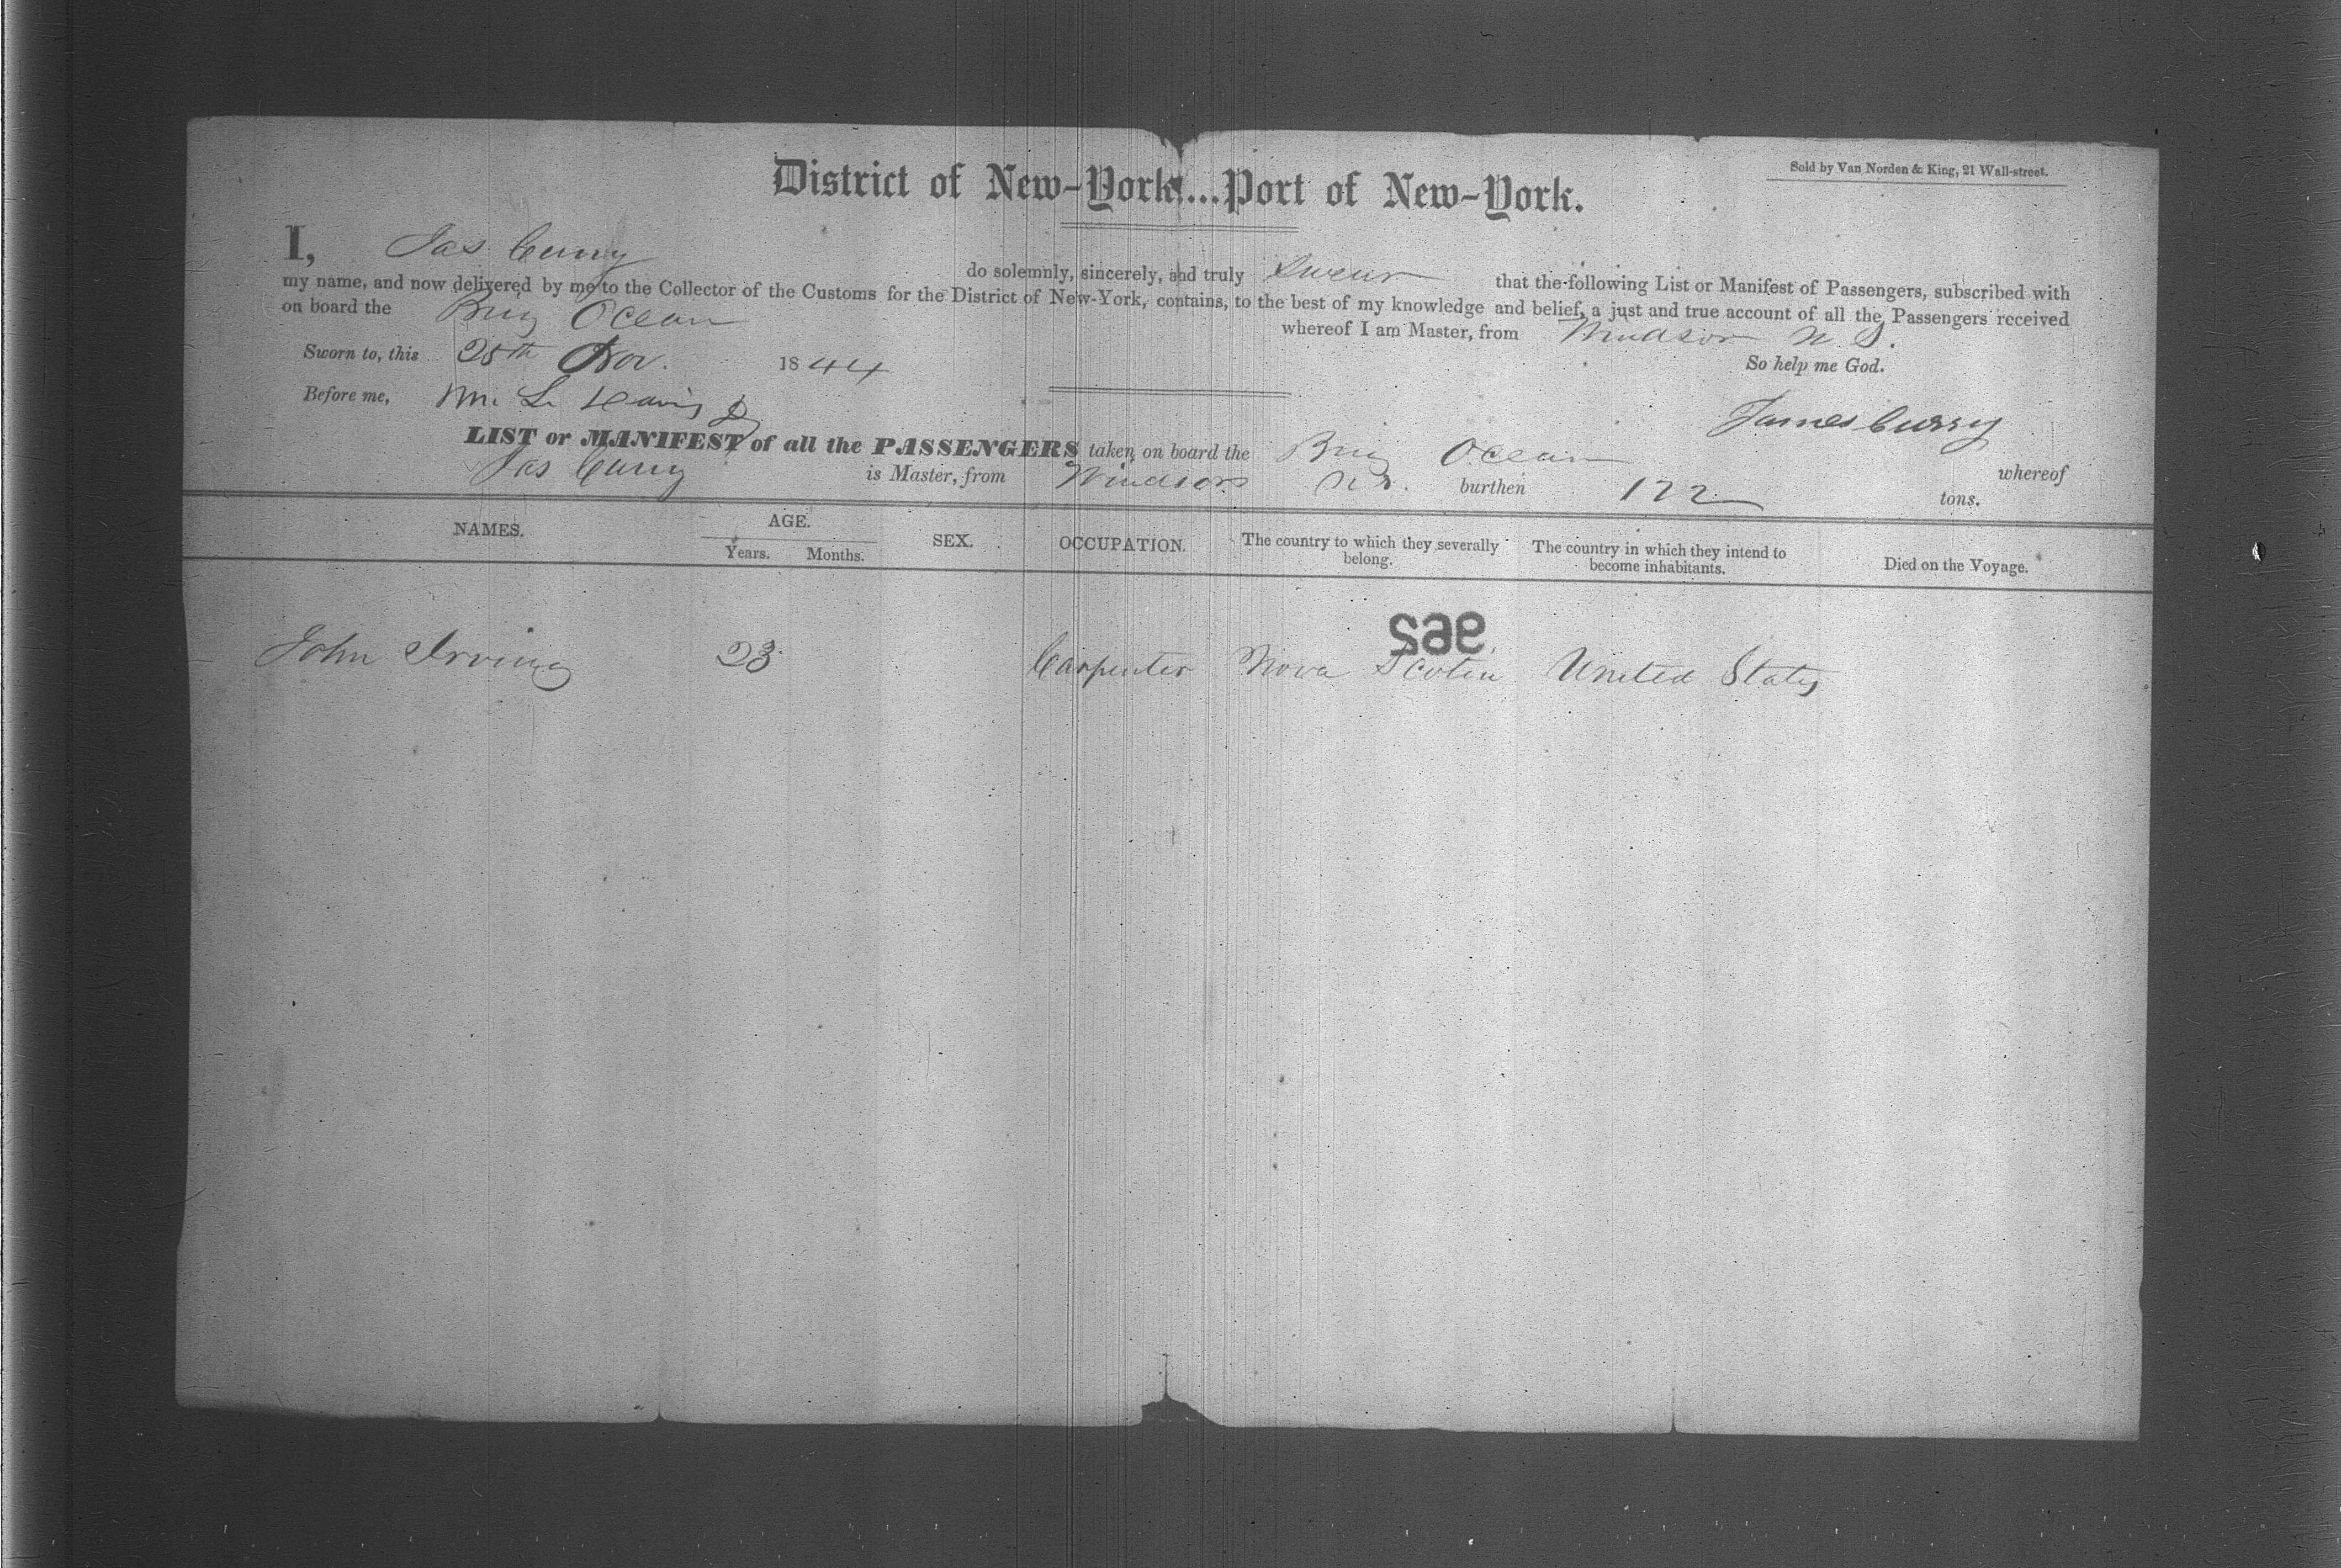 District of New-York....Port of New-York.
Sold by Van Norden & King, 21 Wall-street.
I, Jas Curry do solemnly, sincerely, and truly swear that the following List or Manifest of Passengers, subscribed with
my name, and now delivered by me to the Collector of the Customs for the District of New-York, contains, to the best of my knowledge and belief, a just and true account of all the Passengers received
on board the Brig Ocean whereof I am Master, from Windsor N.S.
Sworn to, this 25th Nov. 1844 So help me God.
Before me,
James Curry
LIST or MANIFEST of all the PASSENGERS taken on board the Brig Ocean whereof
Jas Curry is Master, from Windsor N.S. burthen 122 tons.
NAMES. AGE. SEX. OCCUPATION. The country to which they severally belong. The country in which they intend to become inhabitants. Died on the Voyage.
Years. Months.
John Irving 23 Carpenter Nova Scotia United States